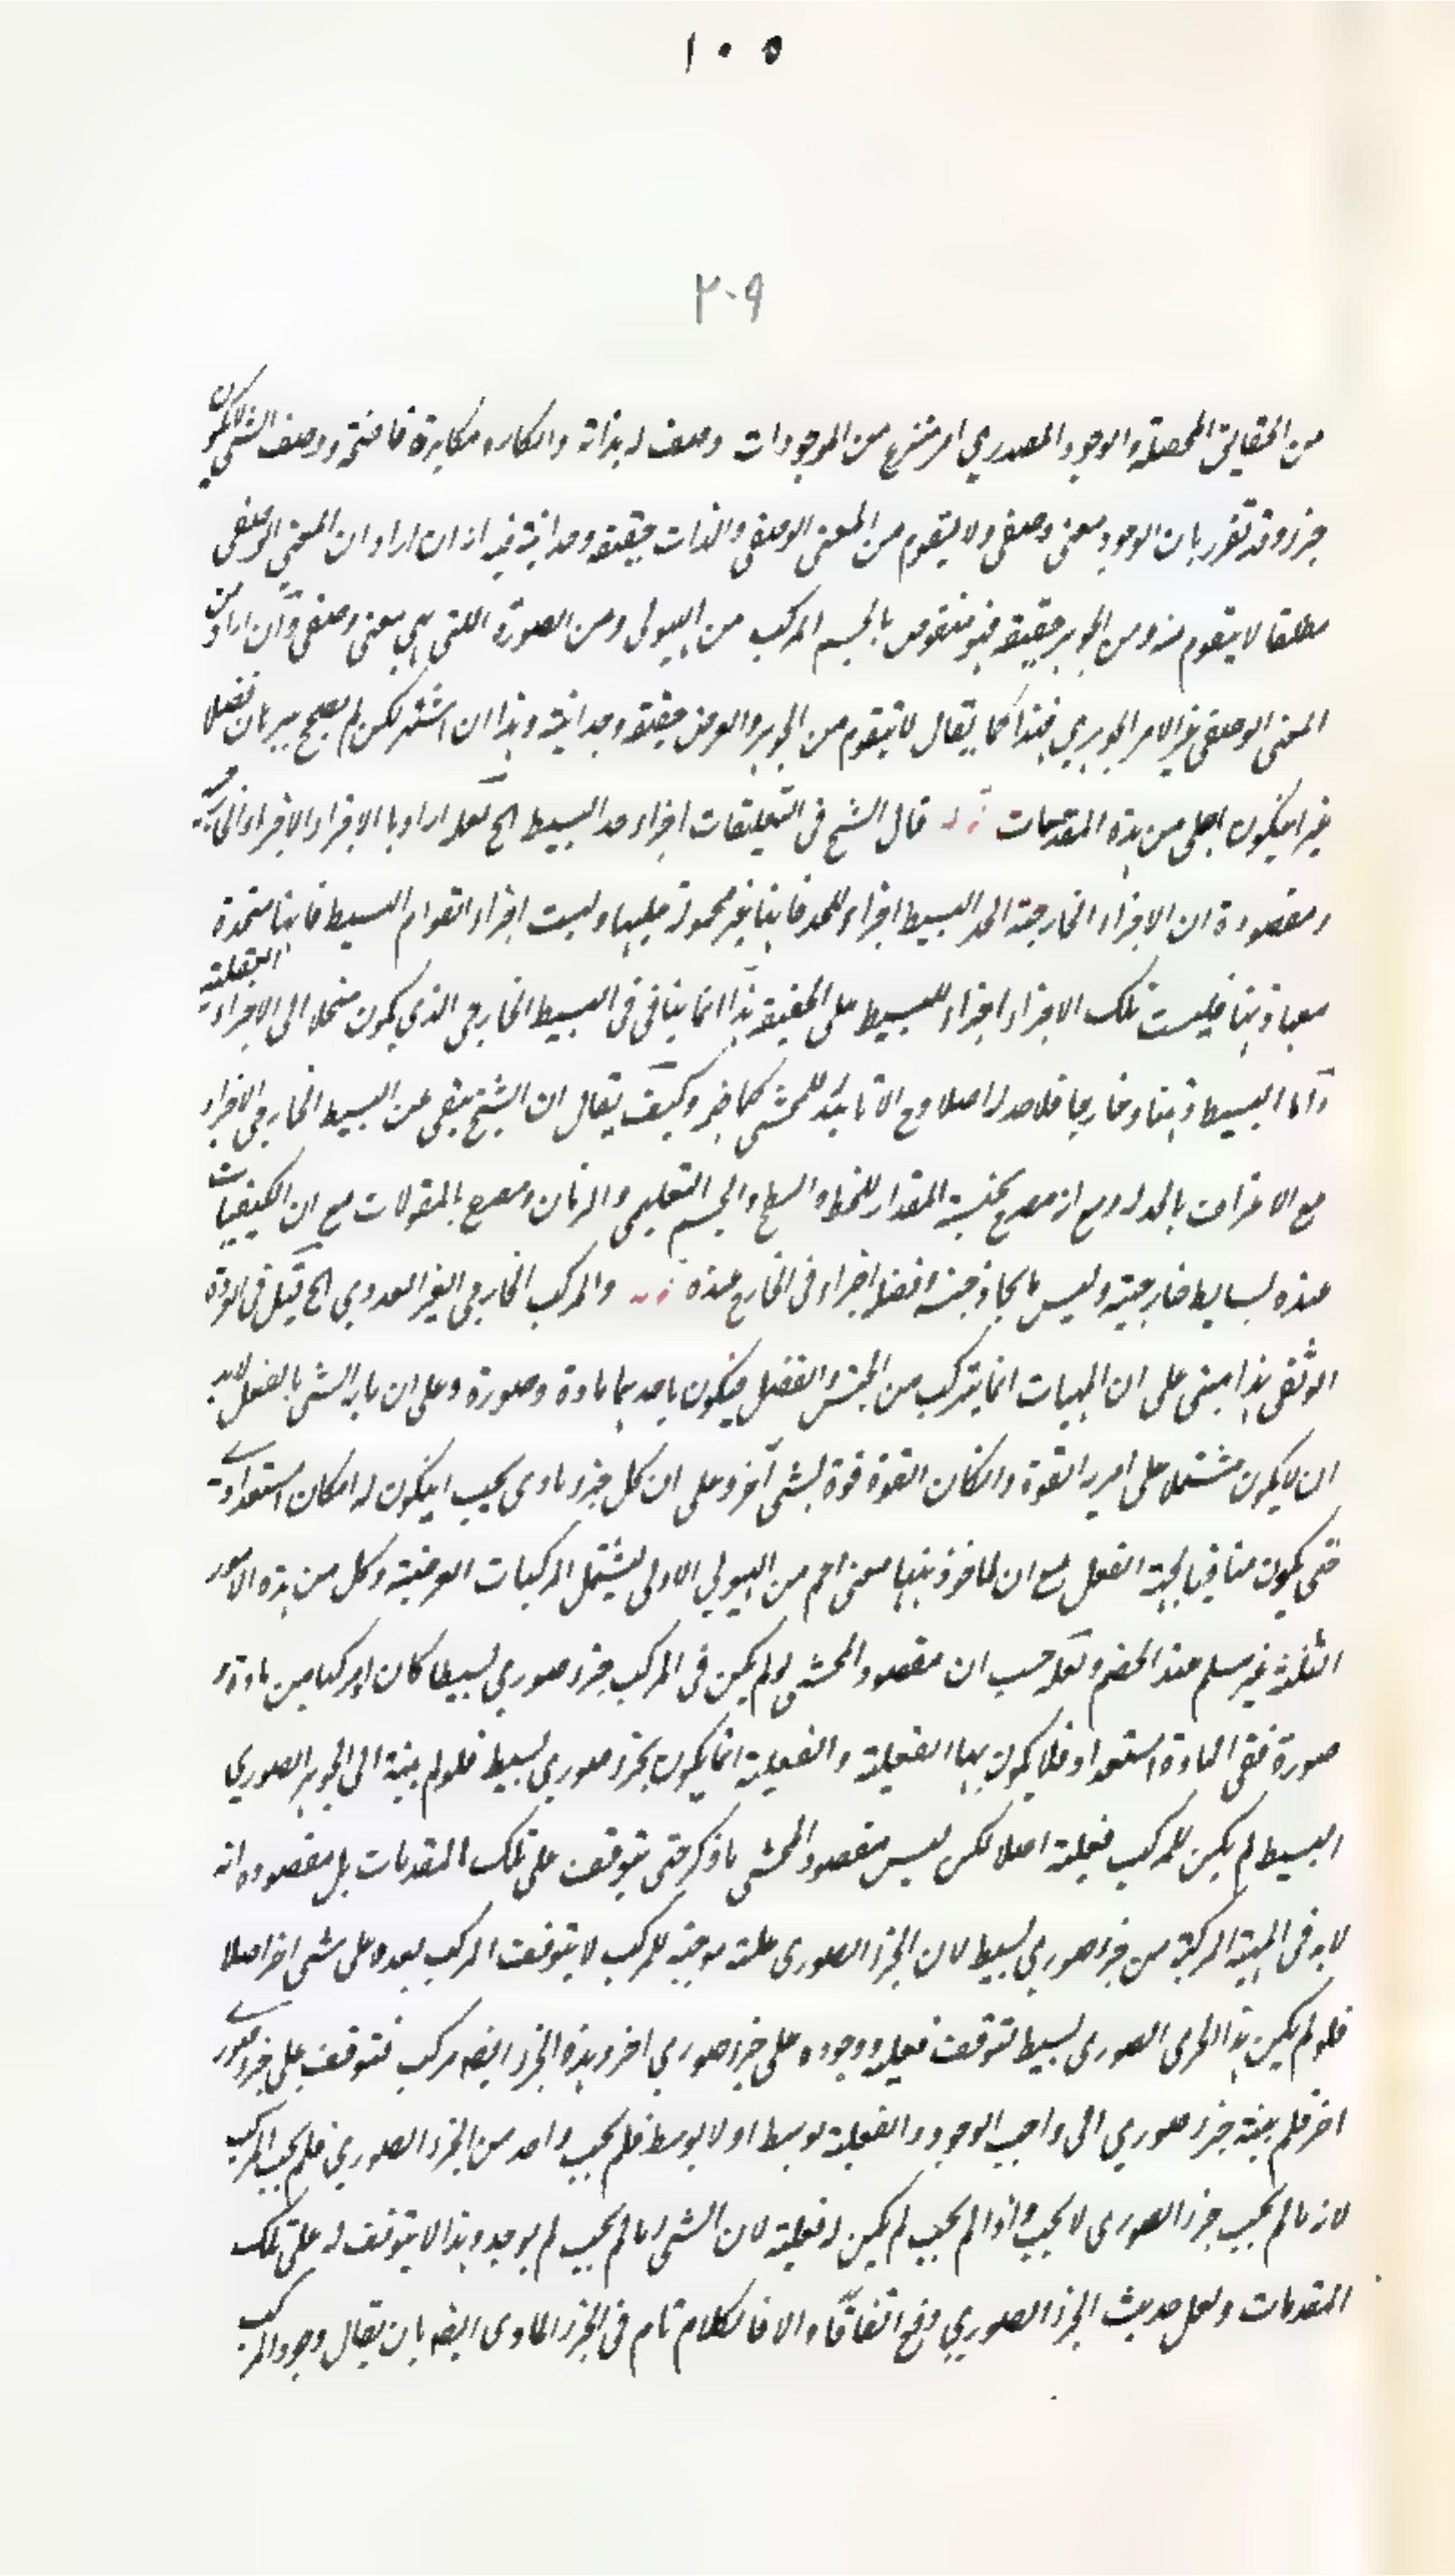 ١٠٥
٢٠٩
من الحقايق المحصلة والوجود المصدري امر منتزع من الموجودات وصف له بذاته وانكاره مكابرة فاضحة ووصف الشي لايكون
جزءه وقد تقرر بان الوجود معنى وصفي ولا يتقوم من المعنى الوصفي والذات حقيقة وحدانية فيه انه ان اراد ان المعنى الوصفي
مطلقا لا يتقوم منه ومن الجوهر حقيقة فهو منقوض بالجسم المركب من الهيولى ومن الصورة اللتي هي معنى وصفي وان اراد ان
المعنى الوصفي غير الامر الجوهري فهذا كما يقال لا يتقوم من الجوهر والعرض حقيقة وحدانية وهذا ان اشتهر لكن لم يصح ببرهان فضلا
عن ان يكون اجلى من هذه المقدمات قوله قال الشيخ في التعليقات اجزاء حد البسيط الخ لعله اراد بالاجزاء الاجزاء الخارجية
ومقصوده ان الاجزاء الخارجية لحد البسيط اجزاء للحد فانها غير محمولة عليها وليست اجزاء لقوام البسيط فانها متحدة
معها ذهنا فليست تلك الاجزاء اجزاء للبسيط على الحقيقة هذا انما ينافي في البسيط الخارجي الذي يكون منحلا الى الاجزاء العقلية
واما البسيط ذهنا وخارجا فلا حد له اصلا وح لا تائيد للمحشي كما خبر وكيف يقال ان الشيخ ينفي عن البسيط الخارجي الاجزاء
مع الاعتراف بالحد له ومع انه مصرح بجنسية المقدار للخط والسطح والجسم التعليمي والزمان ومصرح بالمقولات مع ان الكيفيات
عنده بسايط خارجية وليس بحذاء جنسه وفصله اجزاء في الخارج عنده قوله والمركب الخارجي الغير العددي الخ قيل في العروة
الوثقى هذا مبني على ان المهيات انما يتركب من الجنس والفصل فيكون ما حد بهما مادة وصورة وعلى ان ما به الشي بالفعل لابد
ان لا يكون مشتملا على امر به القوة وان كان القوة قوة لشي آخر وعلى ان كل جزء مادي يجب ان يكون له امكان استعدادي
حتى يكون منافيا لجهة الفعل مع ان الماخوذ ههنا معنى اعم من الهيولى الاولى ليشتمل المركبات العرضية وكل من هذه الامور
الثلثة غير مسلم عند الخصم ولعله حسب ان مقصود المحشي لو لم يكن في المركب جزء صوري بسيط كان مركبا من مادة و
صورة ففي المادة استعداد فلا يكون بها الفعلية والفعلية انما يكون بجزء صوري بسيط فلو لم ينته الى الجوهر الصوري
البسيط لم يكن للمركب فعلية اصلا لكن ليس مقصود المحشي ما ذكر حتى يتوقف على تلك المقدمات بل مقصوده انه
لابد في المهية المركبة من جزء صوري بسيط لان الجزء الصوري علة موجبة للمركب لا يتوقف المركب بعده على شي اخر اصلا
فلو لم يكن هذا الجزء الصوري بسيط لتوقف فعليه ووجوده على جزء صوري اخر وهذه الجزء ايضه مركب فتوقف على جزء صوري
اخر فلم ينته جزء صوري الى واجب الوجود والفعلية بوسط او لا بوسط فلم يجب واحد من الجزء الصوري فلم يجب المركب
لانه مالم يجب جزء الصوري لا يجب واذا لم يجب لم يكن له فعلية لان الشي مالم يجب لم يوجد وهذا لا يتوقف له على تلك
المقدمات ولعل حديث الجزء الصوري وقع اتفاقا والا فالكلام تام في الجزء المادي ايضه بان يقال وجود المركب